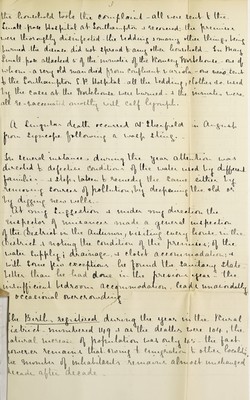 the household took the complaint - all were sent to the
Small-pox Hospital at Southampton & recovered, the premises
were thoroughly disinfected - the bedding among other things being
burned the disease did not spread to any other household. In May
Small-pox attacked 2 of the inmates of the Romsey Workhouse - one of
whom a very old man died from confluent variola - one was sent
to the Southampton S.P. Hospital all the bedding, clothes &c used
by the cases at the Workhouse were burned - & the inmates were
all re-vaccinated mostly with calf lymph.
A Singular death occurred at in August
from following a wasp sting.
In several instances during the year attention was
directed to defective condition of the water used by different
families - & steps taken to remedy the same either by
removing sources of pollution, by deepening the old or
by digging new wells.
At my suggestion & under my direction the
inspector of nuisances made a general inspection
of the district in the Autumn, visiting every house in the
district & noting the condition of the premises, of the
water supply, drainage & closet accommodation &
with some few exceptions he found the sanitary state
better than he had done in the previous year - the
insufficient bedroom accommodation leads unavoidably
to occasional overcrowding
The Births registered during the year in the Rural
District numbered 149 & as the deaths were 104, the
natural increase of population was only 45. the fact
however remains that owing to emigration to other localities
the number of inhabitants remains almost unchanged
decade after decade.